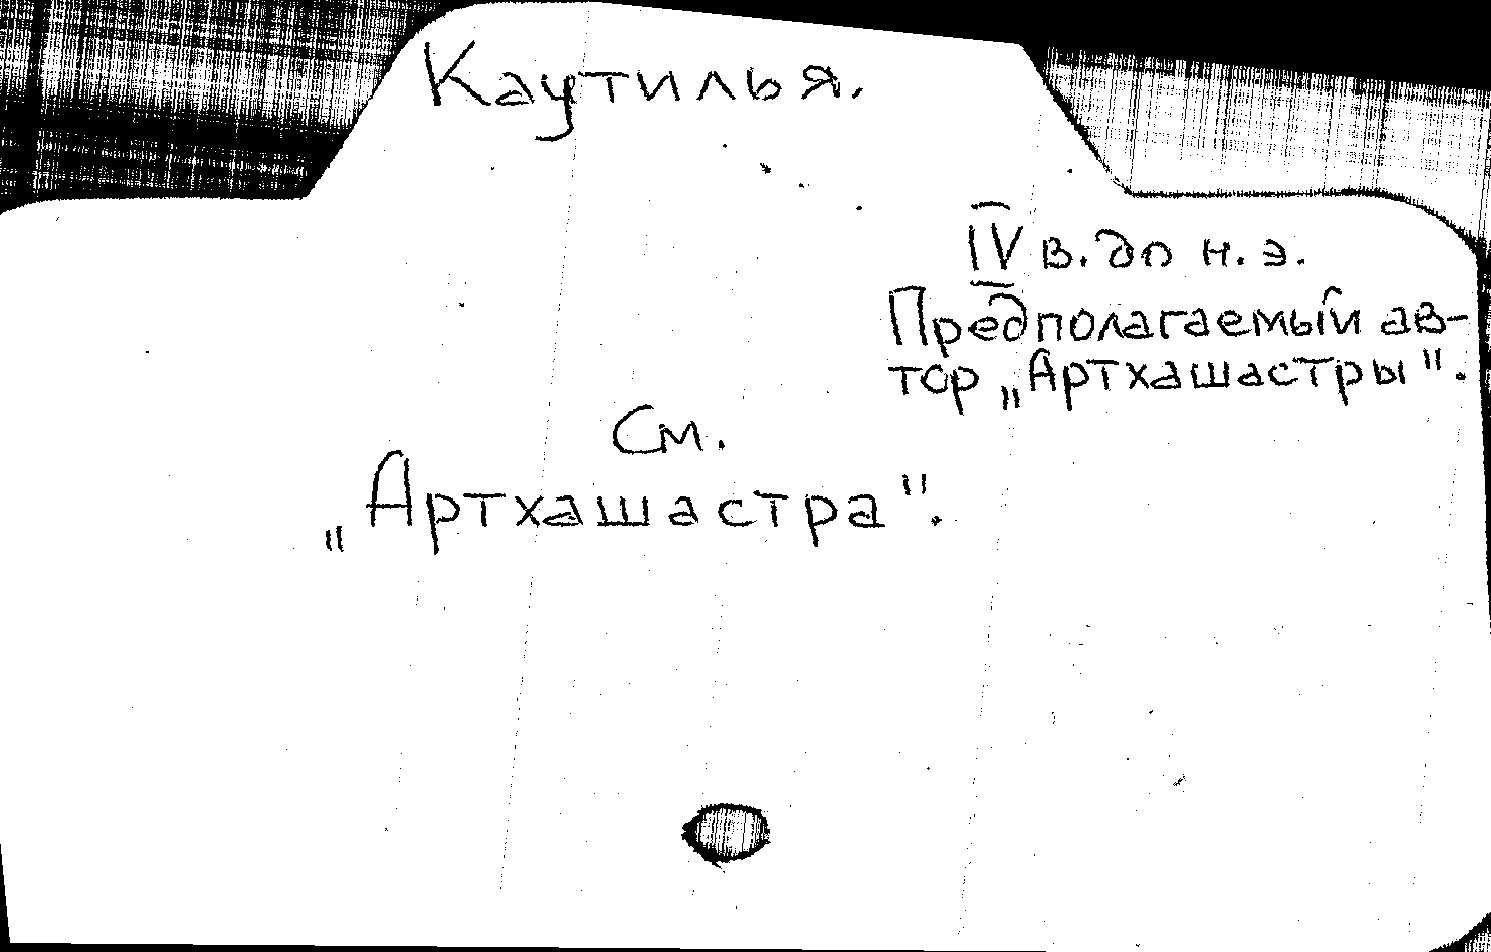 Каутилья.
IV в. до н. э.
Предполагаемый ав-
тор „Артхашастры".
См.
„Артхашастра".